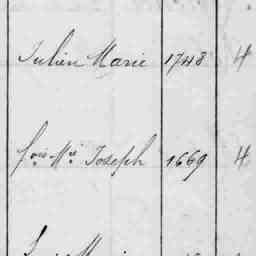 Julien Marie 1748 4
fois Mie Joseph 1669 4